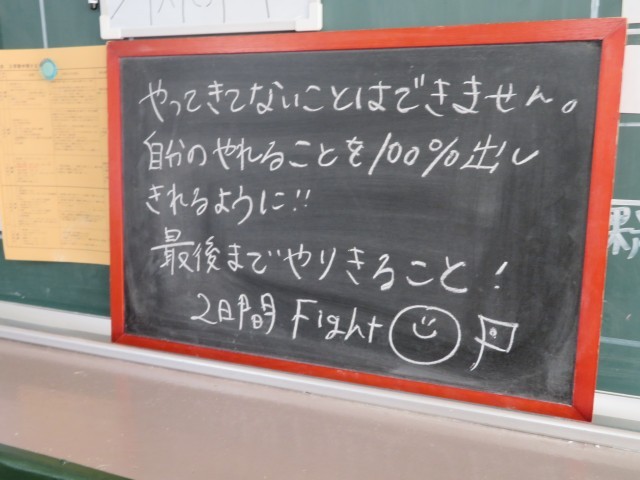 やってきてないことはできません。
自分のやれることを100%出し
きれるように!!
最後までやりきること!
2日間 Fight